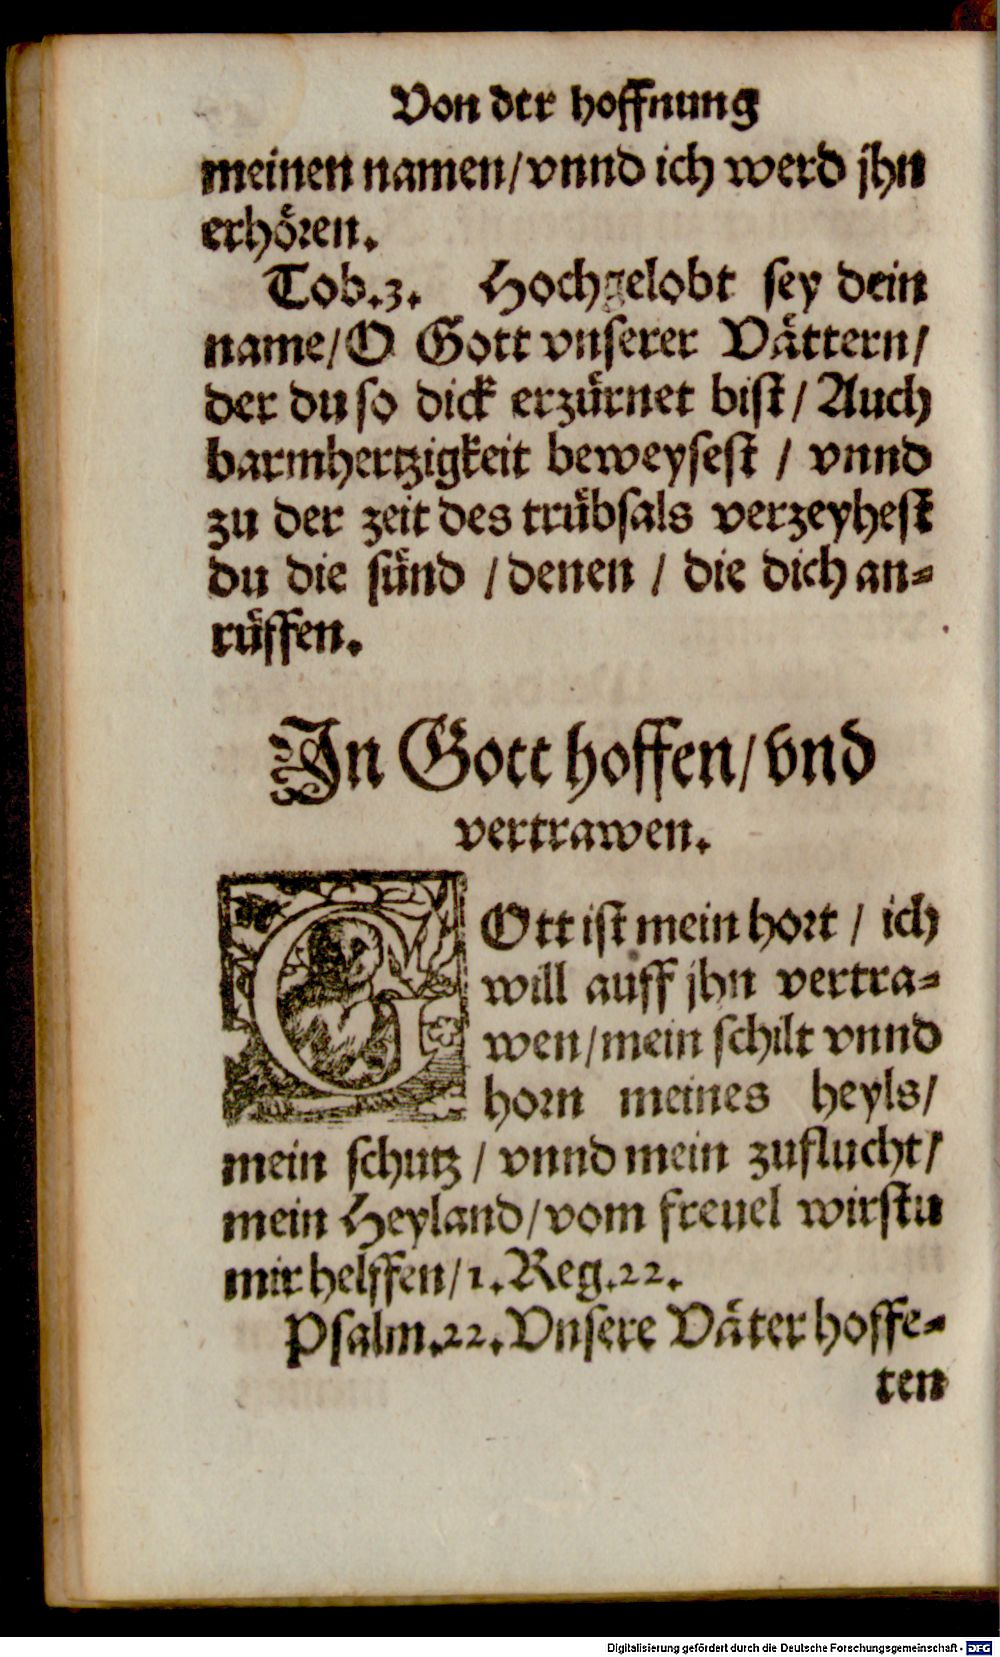 Von der hoffnung
meinen namen/vnnd ich werd jhn
erhören.
Tob.3. Hochgelobt sey dein
name/O Gott vnserer Vättern/
der du so dick erzürnet bist/Auch
barmhertzigkeit beweysest / vnnd
zu der zeit des trübsals verzeyhest
du die sünd /denen / die dich an-
rüffen.
In Gott hoffen/vnd
vertrawen.
GOtt ist mein hort / ich
will auff jhn vertra-
wen/mein schilt vnnd
horn meines heyls/
mein schutz / vnnd mein zuflucht/
mein Heyland/vom freuel wirstu
mir helffen/1.Reg.22.
Psalm.22.Vnsere Väter hoffe-
ten
Digitalisierung gefördert durch die Deutsche Forschungsgemeinschaft - DFG